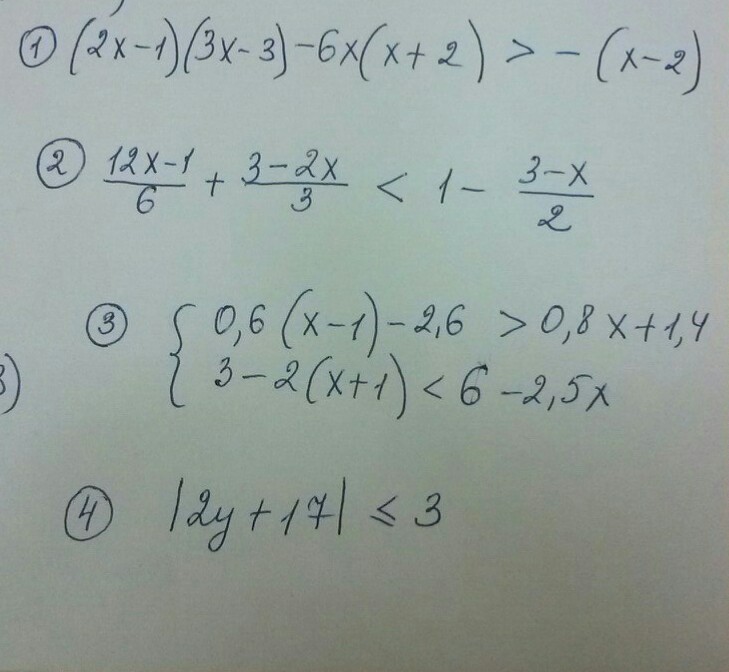 ① (2x-1)(3x-3)-6x(x+2) > -(x-2)
② (12x-1)/6 + (3-2x)/3 < 1 - (3-x)/2
③ { 0,6(x-1)-2,6 > 0,8x+1,4
3-2(x+1) < 6-2,5x
④ |2y+17| ≤ 3